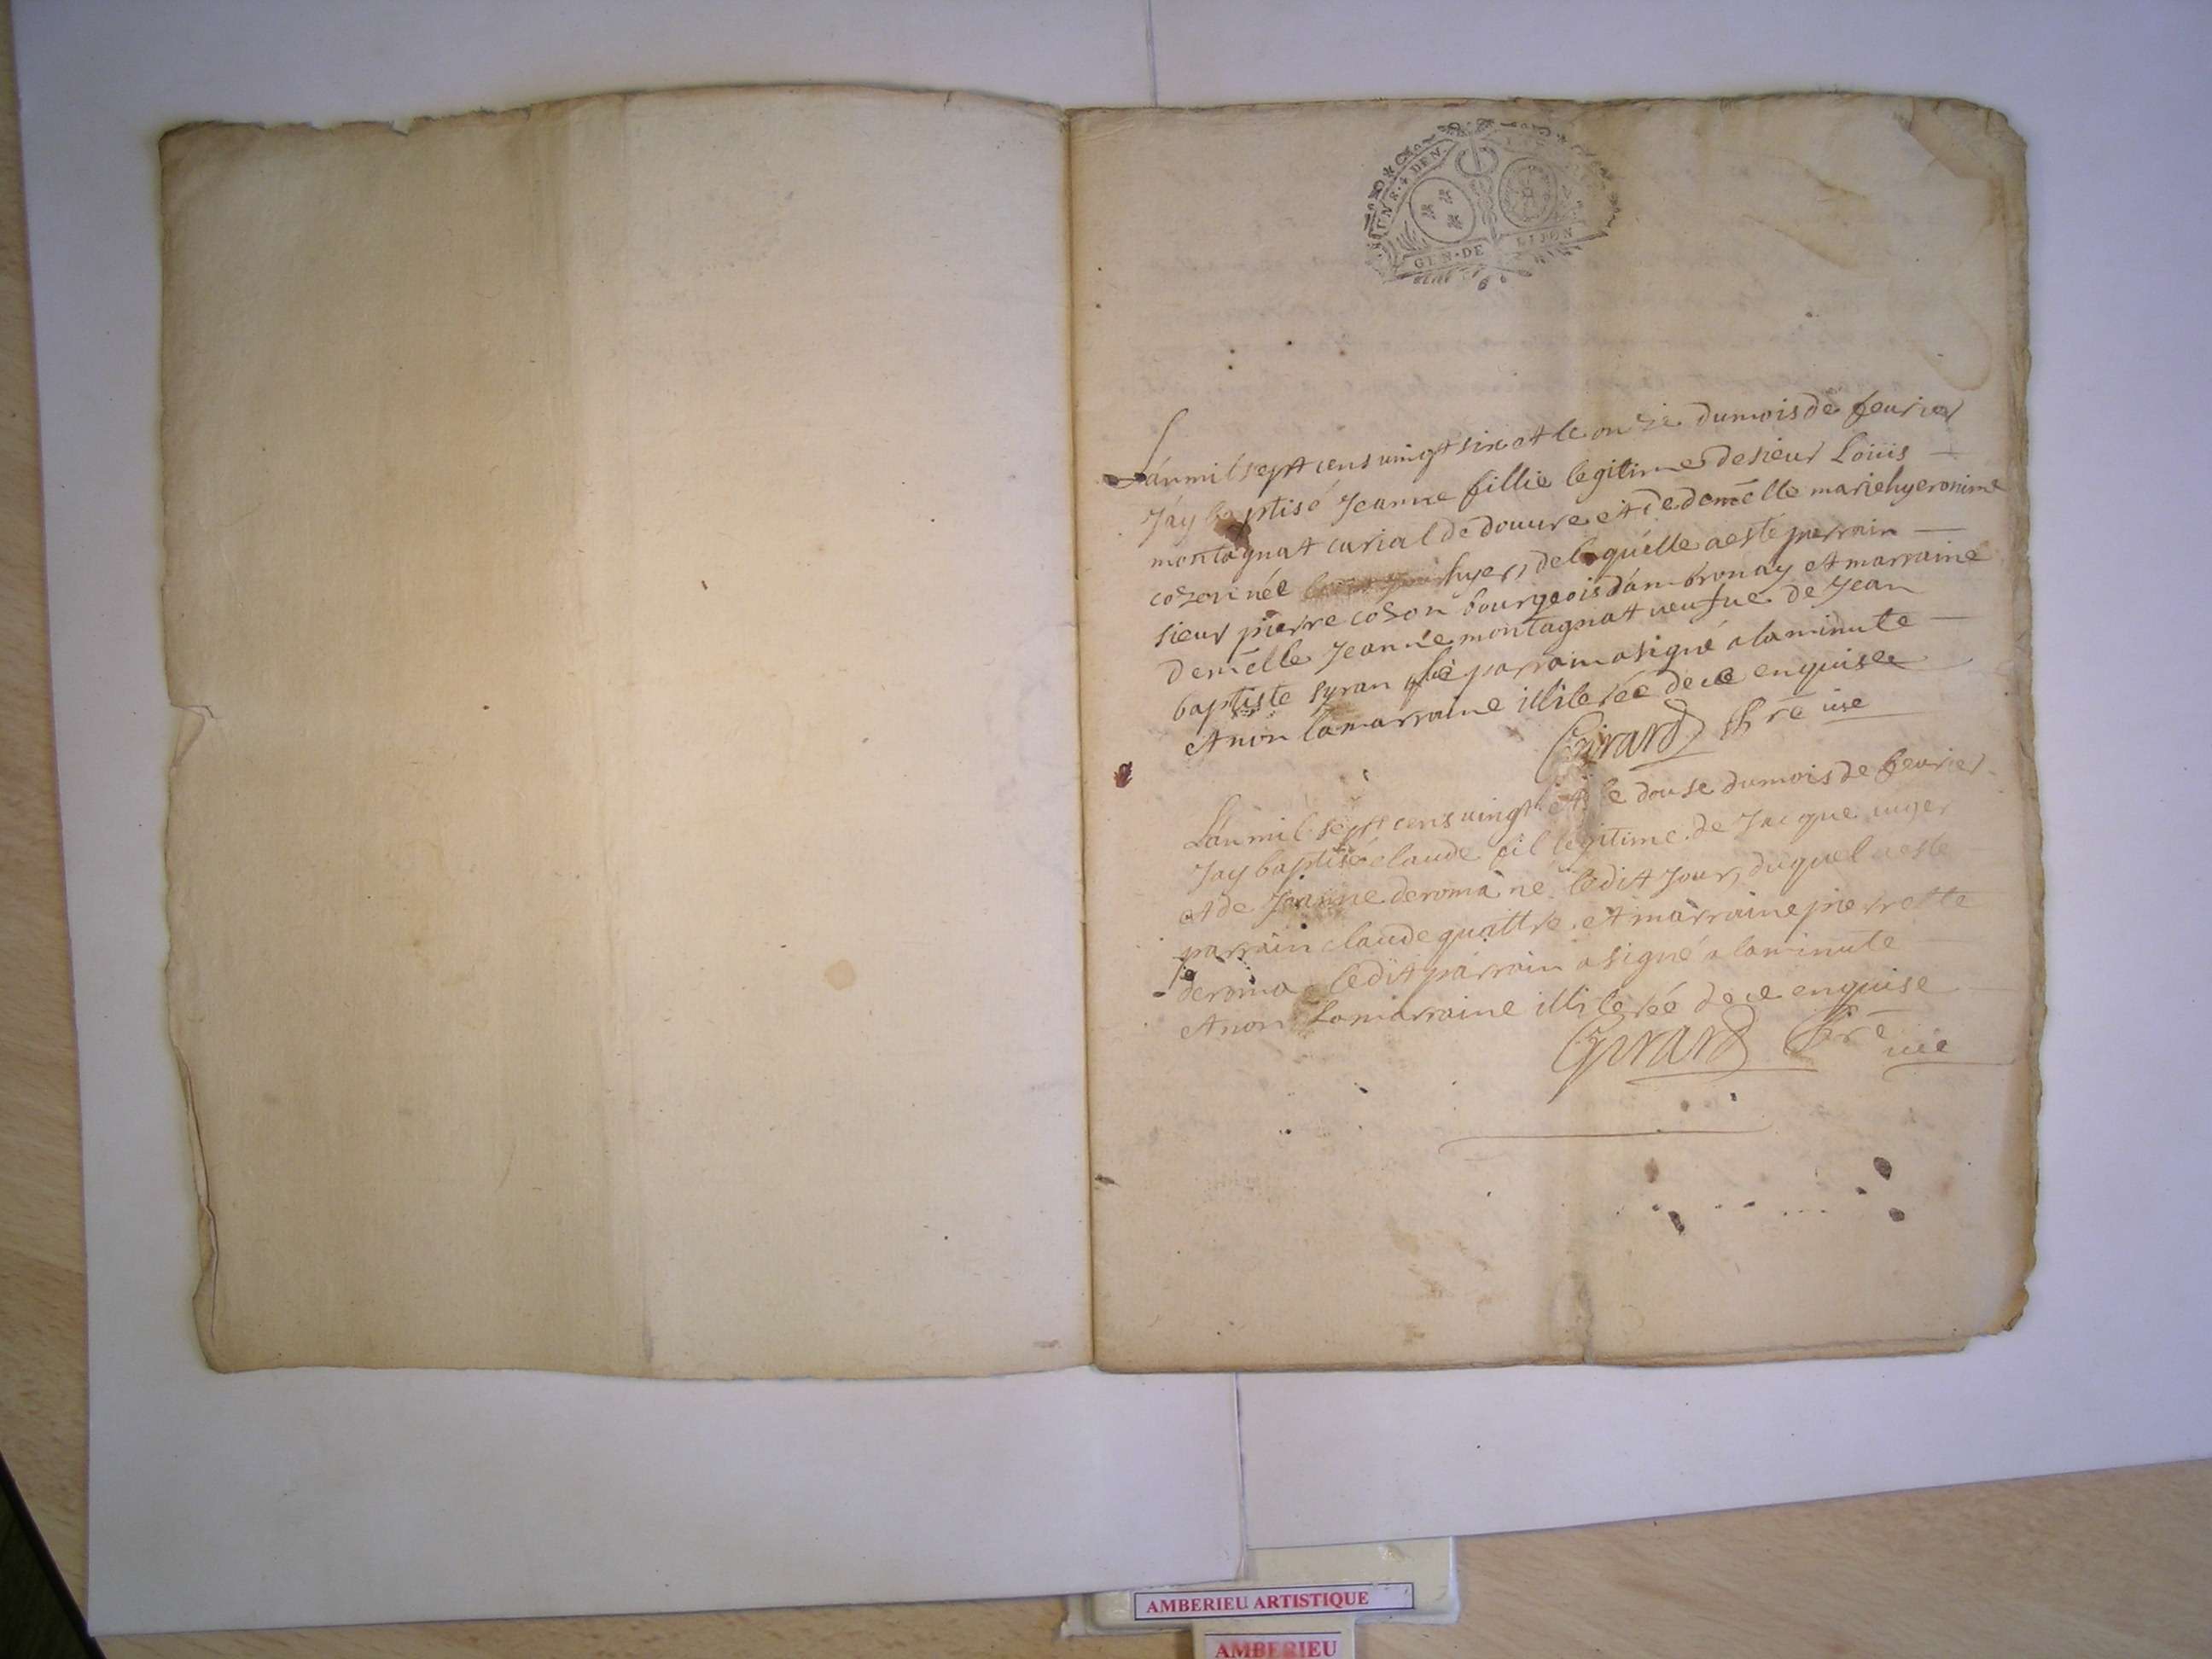 UN S. 4 DEN.
GEN. DE DIJON
L'an mil sept cens uingt six et le onze du mois de feurier
J'ay baptisé Jeanne fillie legitime de sieur Loüis
montagnat curial de douure et de demelle marie hyeronime
cozon née hyer, de laquelle a esté parrain
sieur pierre cozon bourgeois d'ambronay et marraine
demelle Jeanne montagnat ueufue de Jean
baptiste syran le parrain a signé a la minute
et non la marraine illiterée de ce enquise
Girard ptre uic
L'an mil sept cens uingt et le douse du mois de feurier
Jay baptisé claude fil legitime de Jacque uuger
et de Jeanne deroma né ledit Jour, duquel a esté
parrain claude quattre et marraine pierrette
deroma ledit parrain a signé a la minute
et non la marraine illiterée de ce enquise
Girard ptre
uic
AMBERIEU ARTISTIQUE
AMBERIEU